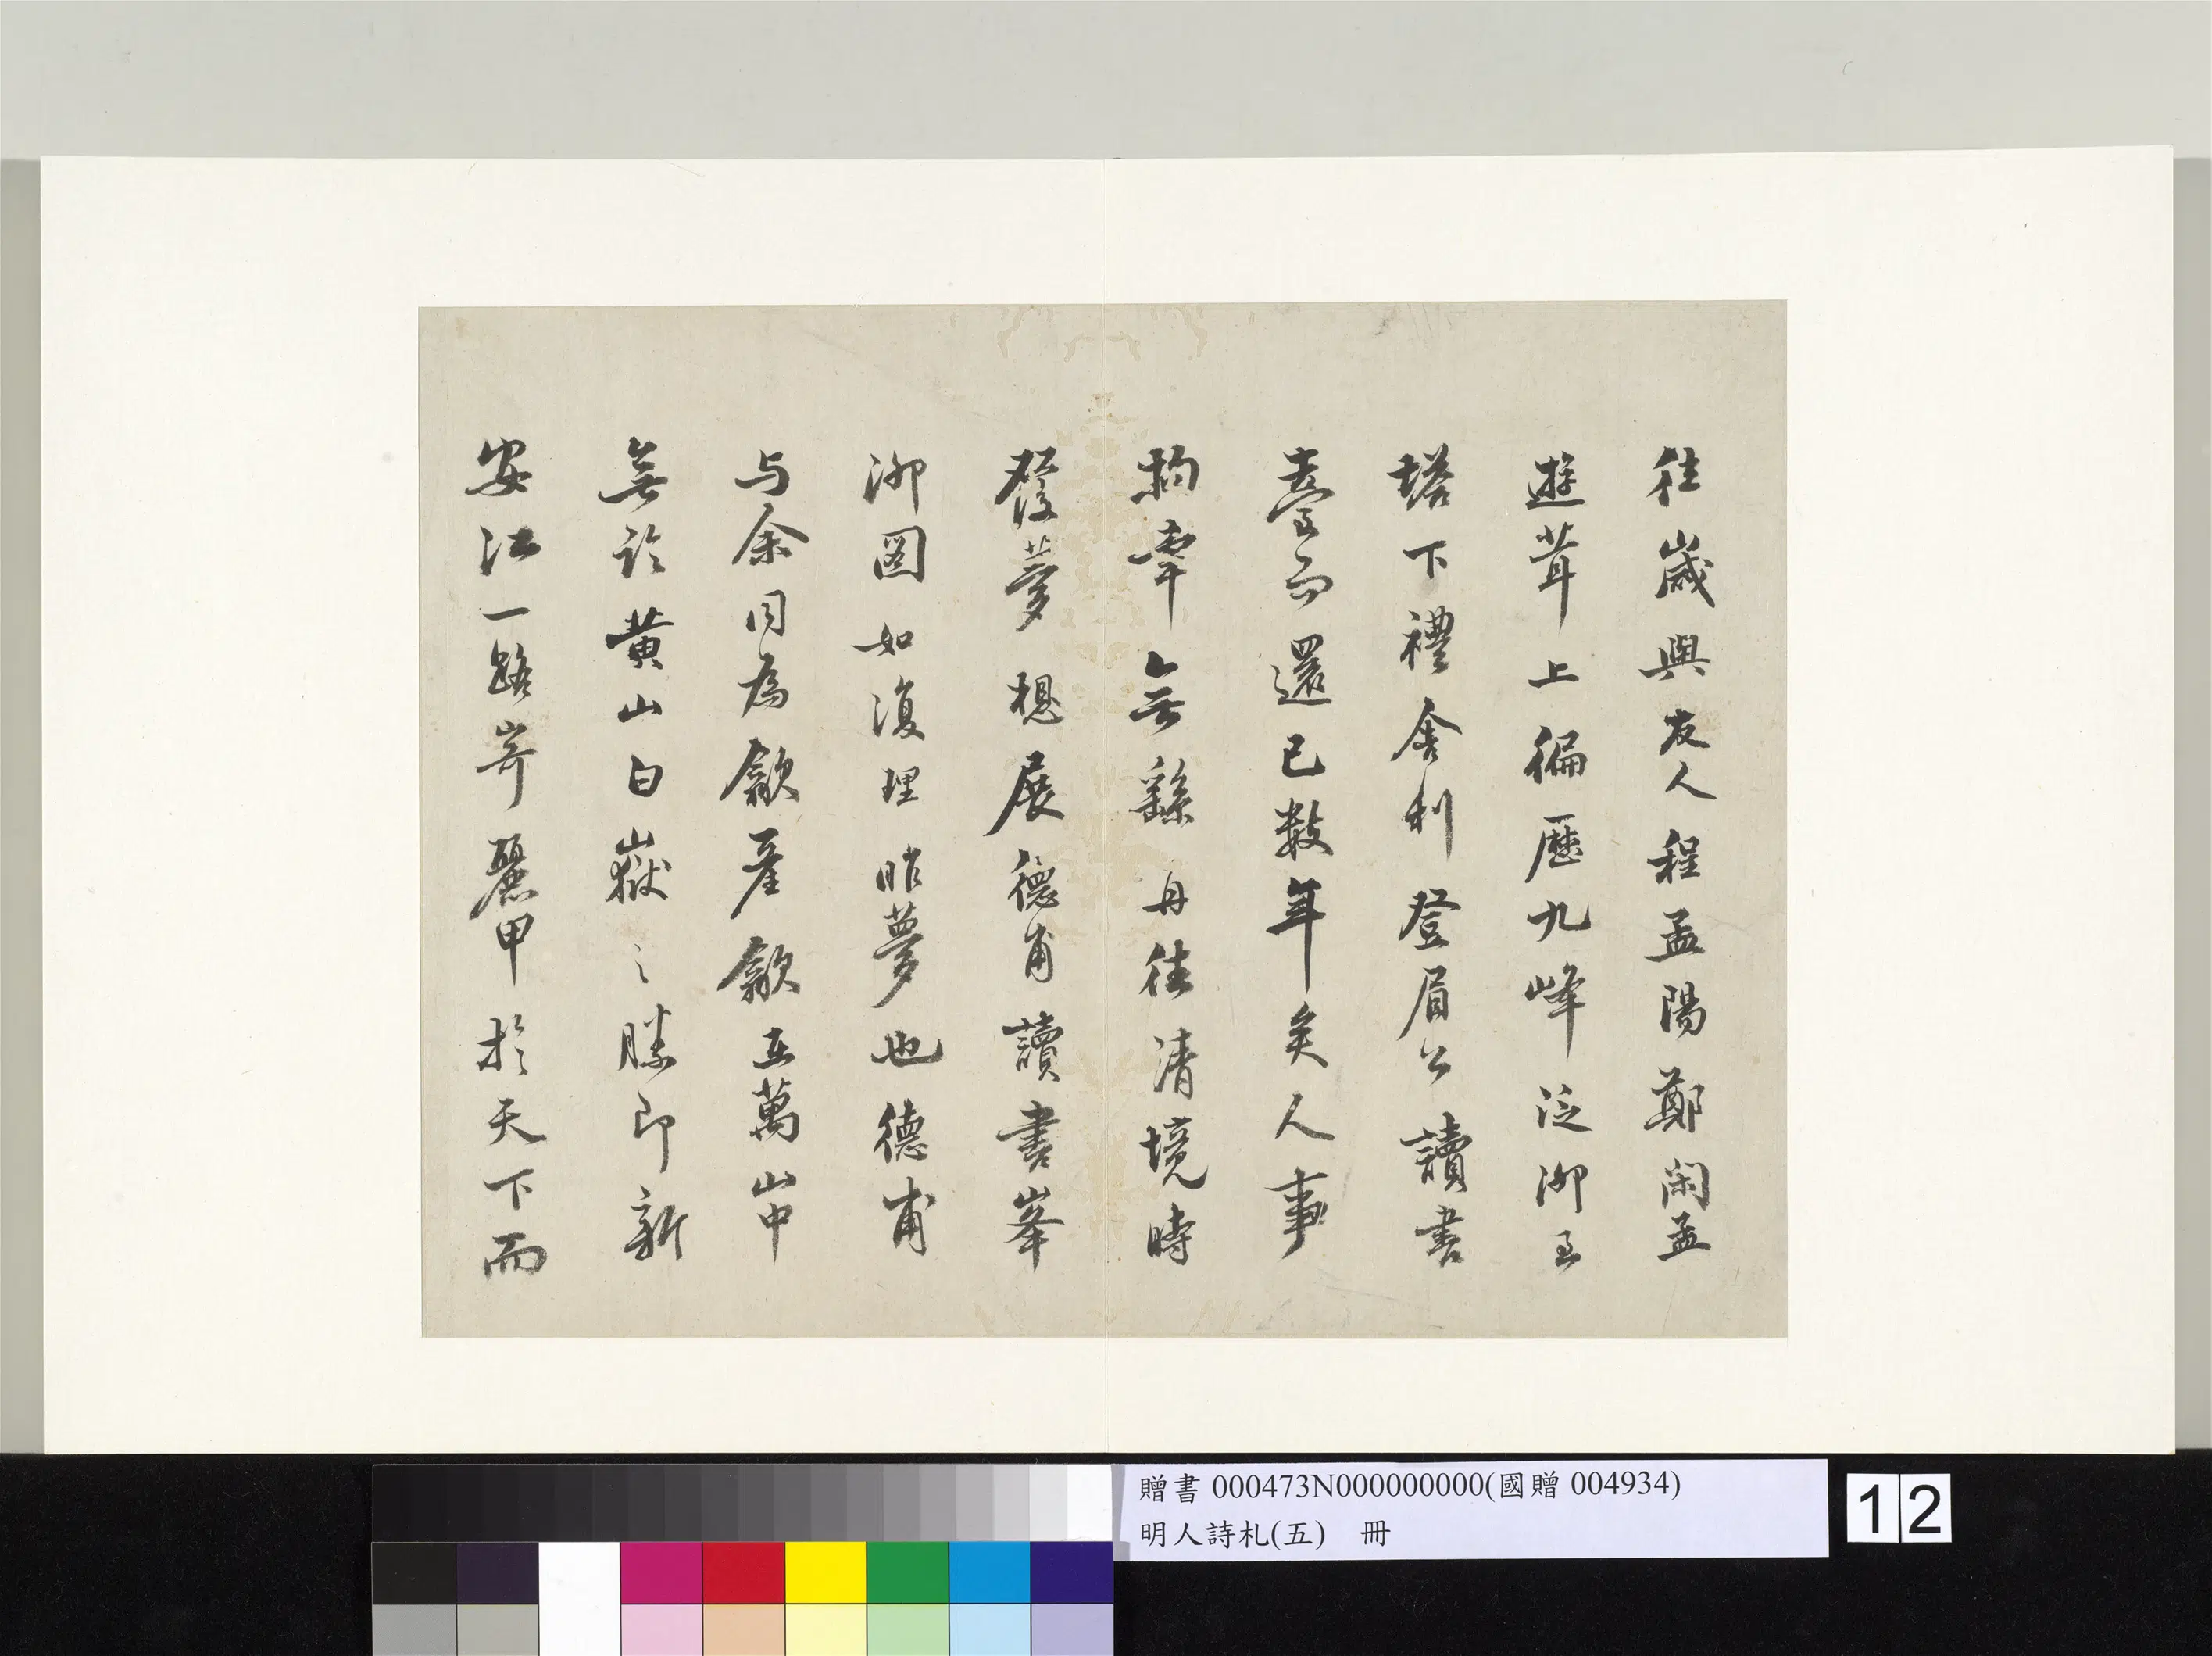 往歲與友人程孟陽鄭閑孟
遊茸上徧歷九峰泛泖至
塔下禮舍利登眉公讀書
臺而還已數年矣人事
拘牽無繇再往清境時
發夢想展德甫讀書峯
泖图如復理昨夢也德甫
与余同為歙產歙在萬山中
無論黃山白嶽之勝即新
安江一路奇麗甲於天下而
贈書 000473N000000000(國贈 004934)
明人詩札(五) 冊
12